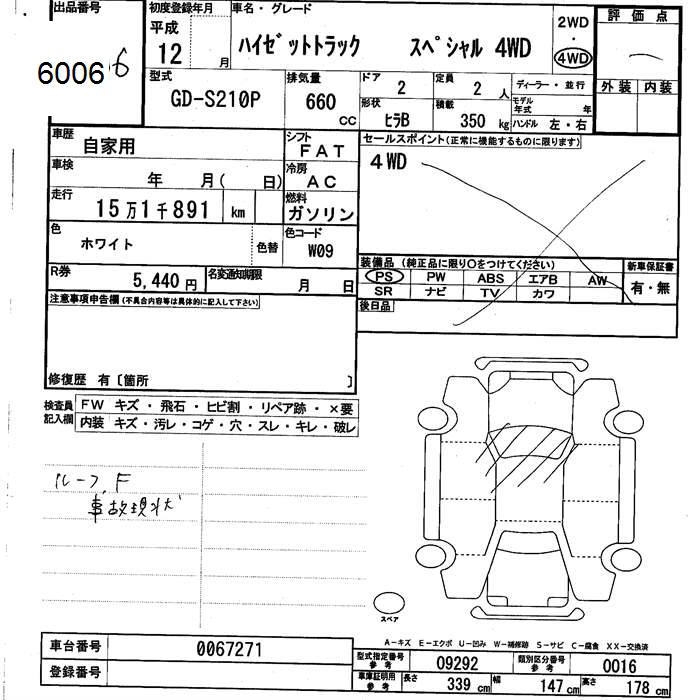 出品番号
6006 6
初度登録年月
平成
12 月
車名・グレード
ハイゼットトラック スペシャル 4WD
2WD
・
4WD
評価点
―
外装 内装
型式
GD-S210P
排気量
660 CC
ドア
2
定員
2 人
ディーラー・並行
形状
ヒラB
積載
350 kg
モデル年式 年
ハンドル 左・右
車歴
自家用
シフト
FAT
セールスポイント(正常に機能するものに限ります)
4WD
車検
年 月( 日)
冷房
AC
走行
15万1千891 km
燃料
ガソリン
色
ホワイト
色替
色コード
W09
装備品 (純正品に限り○をつけてください)
PS PW ABS エアB AW
SR ナビ TV カワ
新車保証書
有・無
R券
5,440円
名変通知期限
月 日
後日品
注意事項申告欄(不具合内容等は具体的に記入して下さい)
修復歴 有〔箇所 〕
検査員記入欄
FW キズ・飛石・ヒビ割・リペア跡・×要
内装 キズ・汚レ・コゲ・穴・スレ・キレ・破レ
ルーフ、F
事故現状
スペア
A-キズ E-エクボ U-凹み W-補修跡 S-サビ C-腐食 XX-交換済
車台番号
0067271
登録番号
型式指定番号
参考
09292
類別区分番号
参考
0016
車庫証明用
参考
長さ
339 cm
幅
147 cm
高さ
178 cm